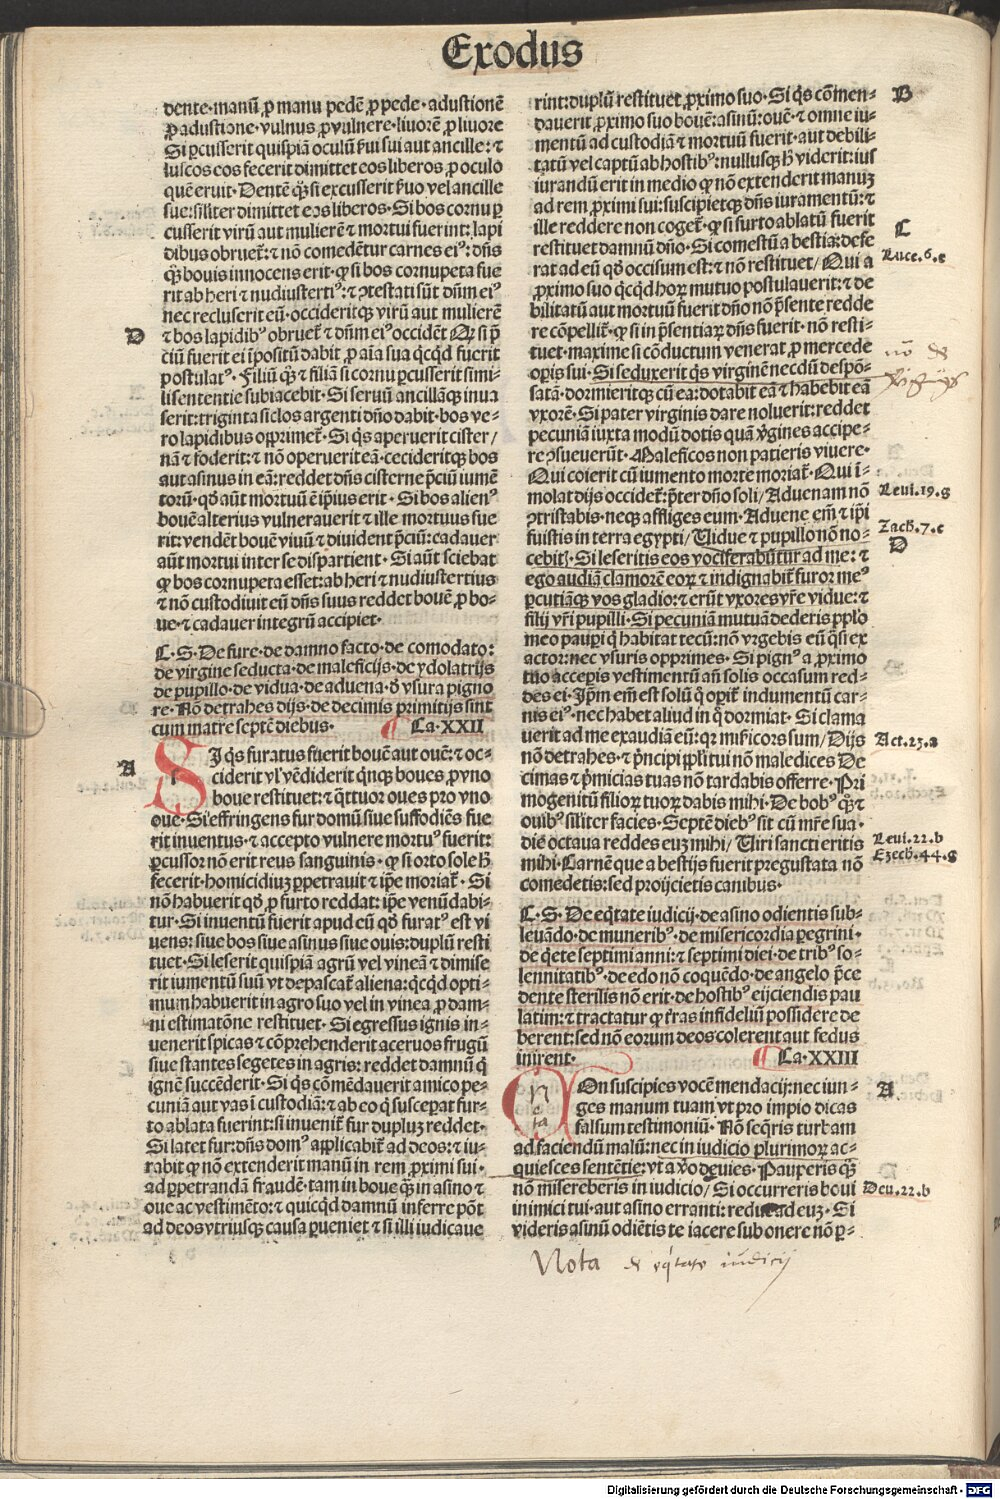 Exodus
dente·manũ ꝓ manu pedẽ ꝓ pede·adustionẽ
ꝓ adustione·vulnus ꝓ vulnere·liuorẽ ꝓ liuore
Si ꝑcusserit quispiã oculũ ẜui sui aut ancille: ⁊
luscos eos fecerit dimittet eos liberos ꝓ oculo
quẽ eruit·Dentẽ qꝫ si excusserit ẜuo vel ancille
sue: siliter dimittet eos liberos·Si bos cornu ꝑ
cusserit virũ aut mulierẽ ⁊ mortui fuerint: lapi
dibus obruet̃: ⁊ nõ comedẽtur carnes eiꝰ: dñs
qꝫ bouis innocens erit·ꝙ si bos cornupeta fue
rit ab heri ⁊ nudiustertiꝰ: ⁊ ꝯtestati sũt dñm eiꝰ
nec recluserit eũ·occideritqꝫ virũ aut mulierẽ
D
⁊ bos lapidibꝰ obruet̃ ⁊ dñm eiꝰ occidẽt Qꝛ si p̃
ciũ fuerit ei ĩpositũ dabit ꝓ aĩa sua qcqd fuerit
postulatꝰ·Filiũ qꝫ ⁊ filiã si cornu ꝑcusserit simi-
li sententie subiacebit·Si seruũ ancillãqꝫ inua
serit: triginta siclos argenti dño dabit·bos ve-
ro lapidibus opprimet̃·Si q̃s aperuerit cister/
nã ⁊ foderit: ⁊ nõ operuerit eã·cecideritqꝫ bos
aut asinus in eã: reddet dñs cisterne p̃ciũ iumẽ
torũ·qd aũt mortuũ ẽ ip̃ius erit·Si bos alienꝰ
bouẽ alterius vulnerauerit ⁊ ille mortuus fue
rit: vendẽt bouẽ viuũ ⁊ diuident p̃ciũ: cadauer
aũt mortui inter se dispartient·Si aũt sciebat
ꝙ bos cornupeta esset: ab heri ⁊ nudiustertius
⁊ nõ custodiuit eũ dñs suus reddet bouẽ ꝓ bo-
ue·⁊ cadauer integrũ accipiet·
C·S·De fure·de damno facto·de comodato:
de virgine seducta·de maleficijs·de ydolatrijs
de pupillo·de vidua·de aduena·d̃ vsura pigno
re·Nõ detrahes dijs·de decimis primitijs sint
cum matre septẽ diebus· Ca·XXII
A
SI q̃s furatus fuerit bouẽ aut ouẽ: ⁊ oc-
ciderit vl̓ vẽdiderit q̃nqꝫ boues ꝓ vno
boue restituet: ⁊ q̃ttuor oues pro vno
oue·Si effringens fur domũ siue suffodiẽs fue
rit inuentus·⁊ accepto vulnere mortuꝰ fuerit:
ꝑcussor nõ erit reus sanguinis·ꝙ si orto sole h̃
fecerit·homicidiuꝫ ꝑpetrauit ⁊ ip̃e moriat̃·Si
nõ habuerit qd ꝓ furto reddat: ip̃e venũdabi-
tur·Si inuentũ fuerit apud eũ qd furatꝰ est vi
uens: siue bos siue asinus siue ouis: duplũ resti
tuet·Si leserit quispiã agrũ vel vineã ⁊ dimise
rit iumentũ suũ vt depascat̃ aliena: qcqd opti-
mum habuerit in agro suo vel in vinea ꝓ dam-
ni estimatõne restituet·Si egressus ignis in-
uenerit spicas ⁊ cõprehenderit aceruos frugũ
siue stantes segetes in agris: reddet damnũ q̃
ignẽ succẽderit·Si q̃s cõmẽdauerit amico pe-
cuniã aut vas ĩ custodiã: ⁊ ab eo q̃ suscepat fur-
to ablata fuerint: si inuenit̃ fur dupluꝫ reddet·
Si latet fur: dñs domꝰ applicabit̃ ad deos: ⁊ iu-
rabit ꝙ nõ extenderit manũ in rem ꝓximi sui·
ad ꝑpetrandã fraudẽ·tam in boue qꝫ in asino ⁊
oue ac vestimẽto: ⁊ quicqd damnũ inferre põt
ad deos vtriusqꝫ causa ꝑueniet ⁊ si illi iudicaue
rint: duplũ restituet ꝓximo suo·Si q̃s cõmen-
B
dauerit ꝓximo suo bouẽ: asinũ: ouẽ·⁊ omne iu-
mentũ ad custodiã ⁊ mortuũ fuerit·aut debili-
tatũ vel captũ ab hostibꝰ: nullusqꝫ h̃ viderit: ius
iurandũ erit in medio ꝙ nõ extenderit manuꝫ
ad rem ꝓximi sui: suscipietqꝫ dñs iuramentũ: ⁊
ille reddere non coget̃·ꝙ si furto ablatũ fuerit
C
restituet damnũ dño·Si comestũ a bestia: defe
Luce·6·e
rat ad eũ qd occisum est: ⁊ nõ restituet/Qui a
ꝓximo suo qcqd hoꝝ mutuo postulauerit: ⁊ de
bilitatũ aut mortuũ fuerit dño nõ p̃sente redde
re cõpellit̃·ꝙ si in p̃sentiaꝝ dñs fuerit·nõ resti-
tuet·maxime si cõductum venerat ꝓ mercede
oꝑis sui·Si seduxerit q̃s virginẽ necdũ despõ-
satã·dormieritqꝫ cũ ea: dotabit eã ⁊ habebit eã
vxorẽ·Si pater virginis dare noluerit: reddet
pecuniã iuxta modũ dotis quã v̓gines accipe-
re ꝯsueuerũt·Maleficos non patieris viuere·
Qui coierit cũ iumento morte moriat̃·Qui ĩ-
molat dijs occidet̃: p̃ter dño soli/Aduenam nõ
Leui·19·g
ꝯtristabis·neqꝫ affliges eum·Aduene em̃ ⁊ ip̃i
fuistis in terra egypti/Uidue ⁊ pupillo nõ no-
Zach·7·c
D
cebitꝭ·Si leseritis eos vociferabũtur ad me: ⁊
ego audiã clamorẽ eoꝝ ⁊ indignabit̃ furor meꝰ
ꝑcutiãqꝫ vos gladio: ⁊ erũt vxores vr̃e vidue: ⁊
filij vr̃i pupilli·Si pecuniã mutuã dederis pp̓lo
meo paupꝑi q̃ habitat tecũ: nõ vrgebis eũ q̃si ex
actor: nec vsuris opprimes·Si pignꝰ a ꝓximo
tuo acceꝑis vestimentũ añ solis occasum red-
des ei·Ip̃m em̃ est solũ q̃ opit̃ indumentũ car-
nis eiꝰ·nec habet aliud in q̃ dormiat·Si clama
uerit ad me exaudiã eũ: qꝛ mis̃icors sum/Dijs
Act·23·a
nõ detrahes·⁊ p̃ncipi pp̓li tui nõ maledices De
cimas ⁊ p̃micias tuas nõ tardabis offerre·Pri
mogenitũ filioꝝ tuoꝝ dabis mihi·De bobꝰ qꝫ ⁊
ouibꝰ siliter facies·Septẽ diebꝰ sit cũ mr̃e sua·
die octaua reddes euꝫ mihi/Uiri sancti eritis
Leui·22·b
mihi·Carnẽ que a bestijs fuerit pregustata nõ
Ezech·44·g
comedetis: sed proijcietis canibus·
C·S·De eq̃tate iudicij·de asino odientis sub-
leuãdo·de muneribꝰ·de misericordia ꝑegrini·
de q̃ete septimi anni: ⁊ septimi diei·de tribꝰ so-
lennitatibꝰ·de edo nõ coquẽdo·de angelo p̃ce
dente sterilis nõ erit·de hostibꝰ eijciendis pau
latim: ⁊ tractatur ꝙ t̃ras infideliũ possidere de
berent: sed nõ eorum deos colerent aut fedus
inirent· Ca·XXIII
A
NOn suscipies vocẽ mendacij: nec iun-
ges manum tuam vt pro impio dicas
falsum testimoniũ·Nõ seq̃ris turbam
ad faciendũ malũ: nec in iudicio plurimoꝝ ac-
quiesces sentẽtie: vt a v̓o deuies·Pauperis qꝫ
nõ misereberis in iudicio/Si occurreris boui
Deu·22·b
inimici tui·aut asino erranti: reduc ad euꝫ·Si
videris asinũ odiẽtis te iacere sub onere nõ ꝑ-
Nota de eq̃tate iudicij